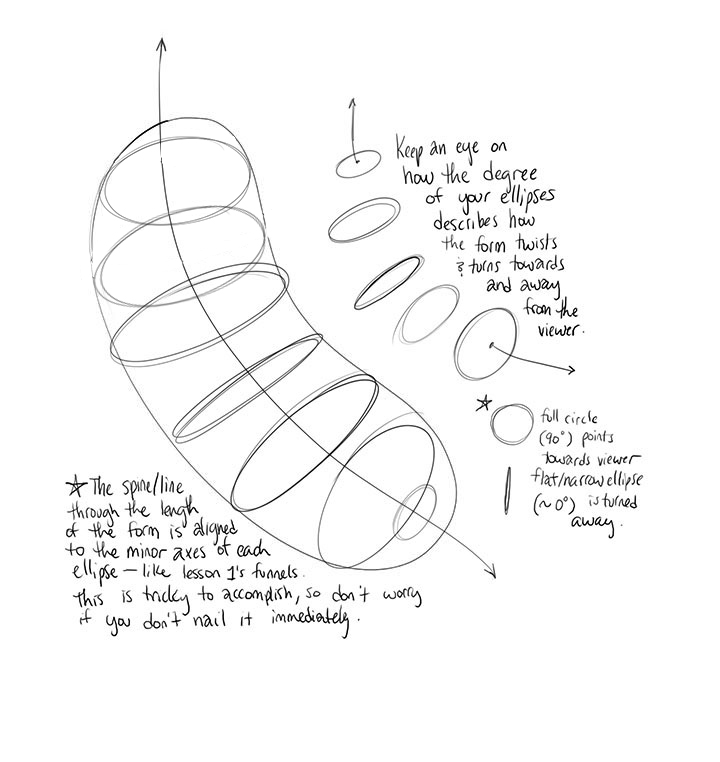 Keep an eye on
how the degree
of your ellipses
describes how
the form twists
& turns towards
and away
from the
viewer.
☆ full circle
(90°) points
towards viewer
flat/narrow ellipse
(~0°) is turned
away.
☆ The spine/line
through the length
of the form is aligned
to the minor axes of each
ellipse — like lesson 1's funnels.
This is tricky to accomplish, so don't worry
if you don't nail it immediately.